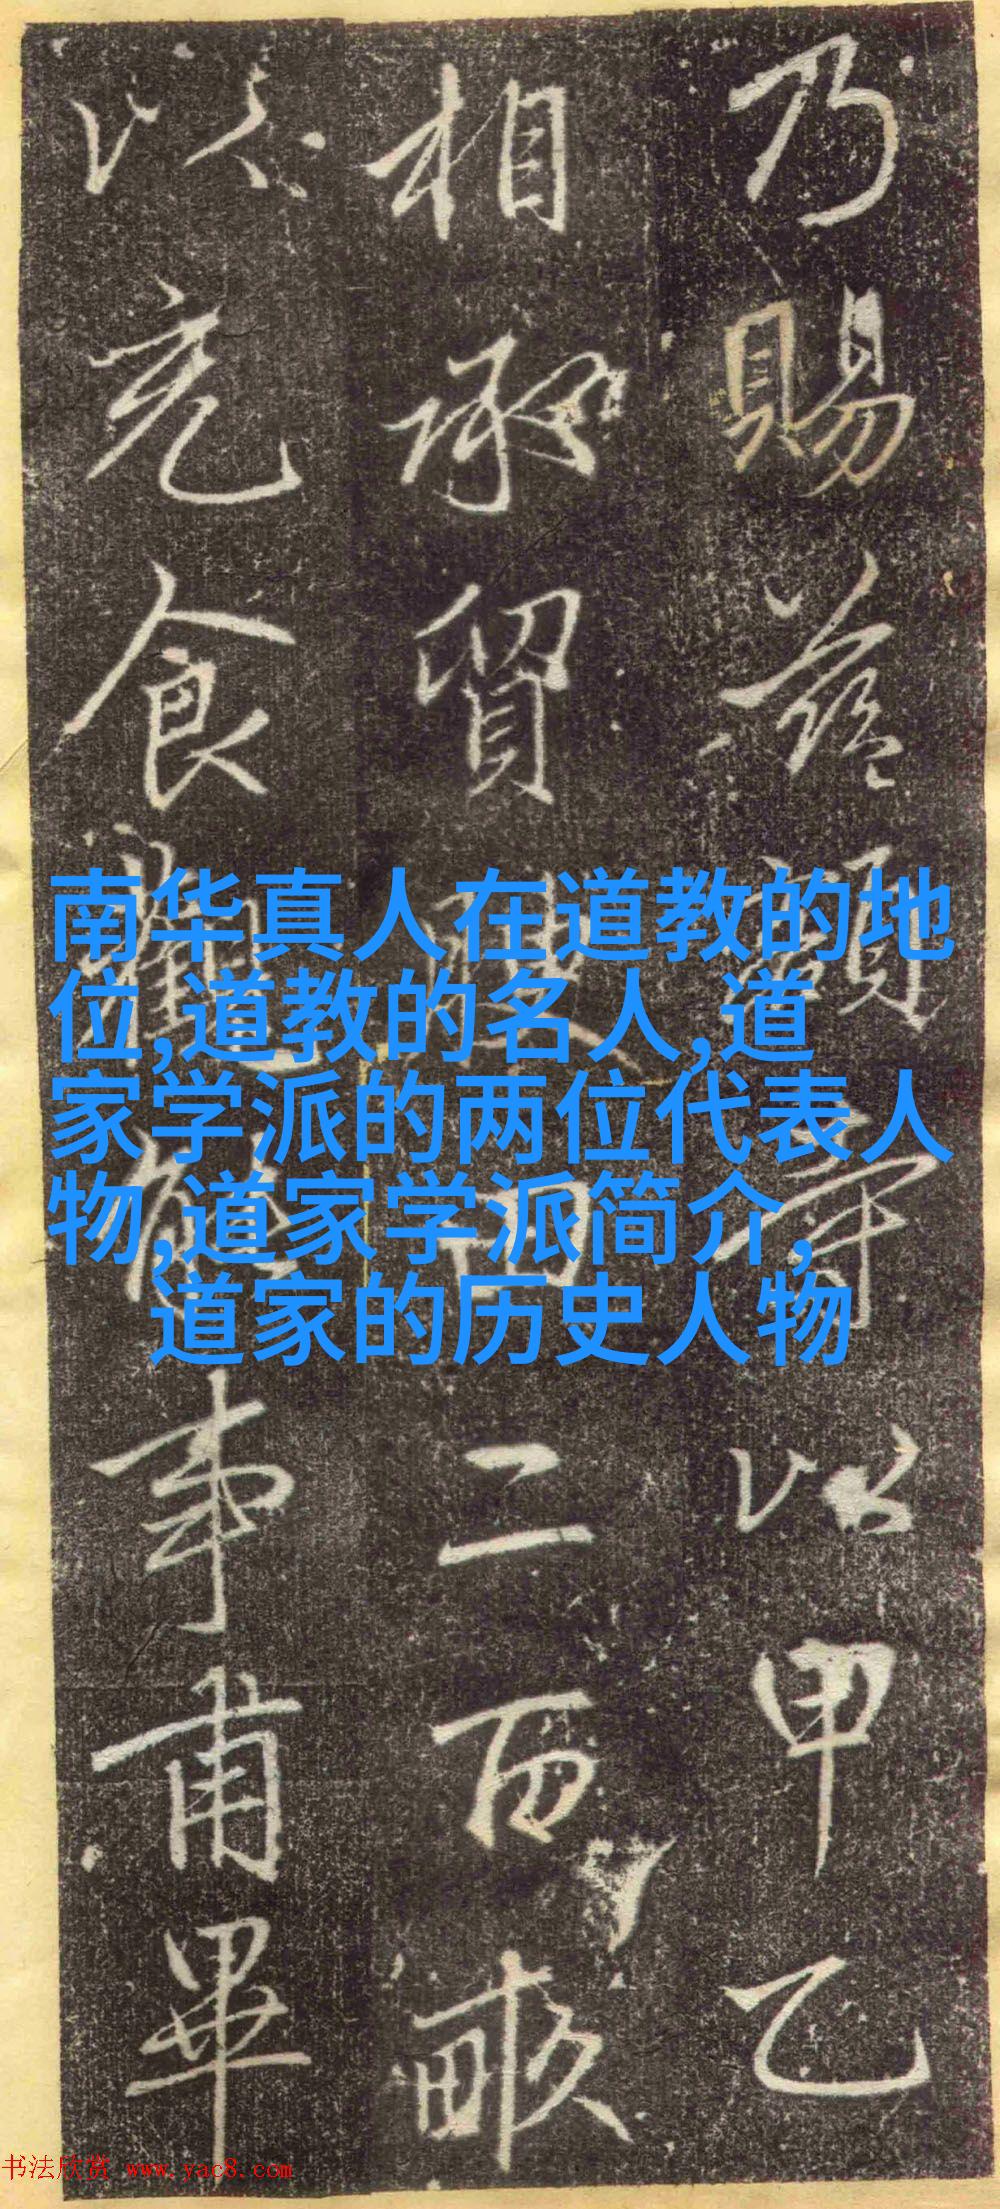 乃賜寺以甲乙
相承貿田二百畝
以充食事甫畢
南华真人在道教的地
位,道教的名人,道
家学派的两位代表人
物,道家学派简介,
道家的历史人物
书法欣赏 www.yac8.com